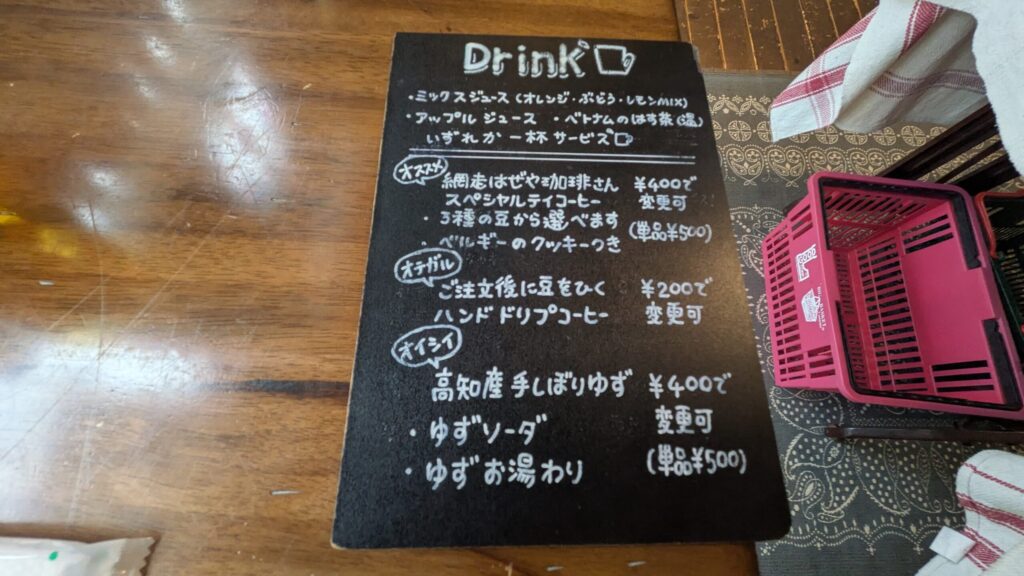 Drink
・ミックスジュース (オレンジ・ぶどう・レモンMIX)
・アップルジュース ・ベトナムのはす茶(温)
いずれか一杯サービス
オススメ
網走はぜや珈琲さん ¥400で
スペシャルティコーヒー 変更可
・3種の豆から選べます (単品¥500)
・ベルギーのクッキーつき
オテガル
ご注文後に豆をひく ¥200で
ハンドドリップコーヒー 変更可
オイシイ
高知産手しぼりゆず ¥400で
変更可
・ゆずソーダ
・ゆずお湯わり (単品¥500)